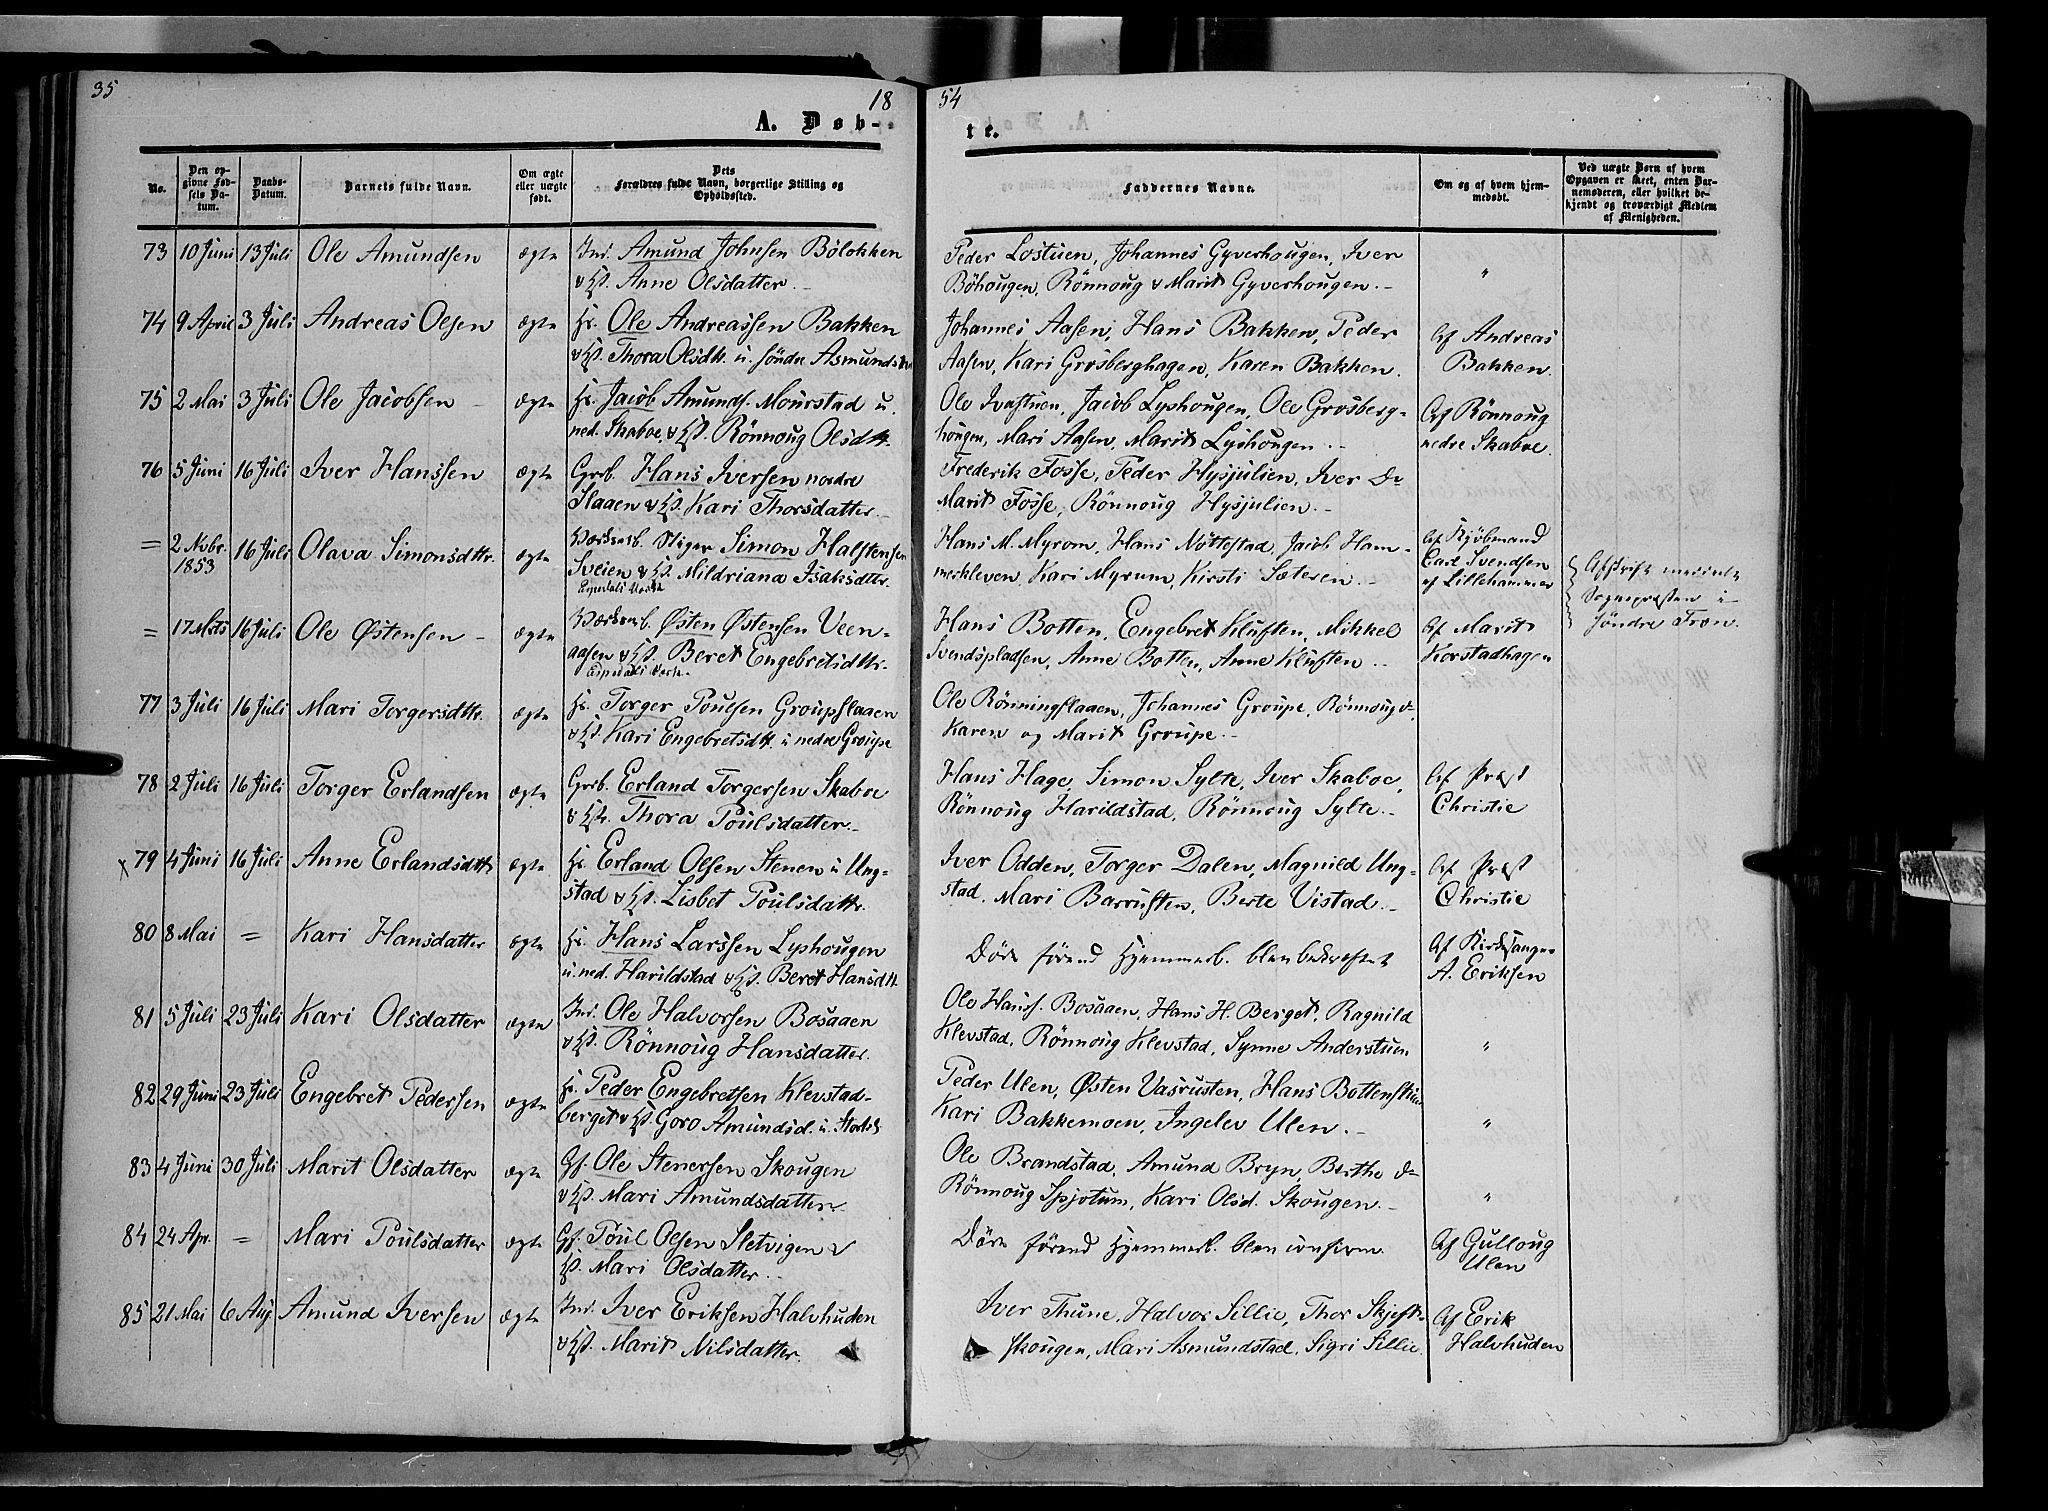 35
18
54
A. Døb-
te.
No.
Den opgivne Fødsels Datum.
Daabs-Datum.
Barnets fulde Navn.
Om ægte eller uægte født.
Dets Forældres fulde Navn, borgerlige Stilling og Opholdssted.
Faddernes Navne.
Om og af hvem hjemmedøbt.
Ved uægte Børn af hvem Opgaven er skeet, enten Barnemoderen, eller hvilket bekjendt og troværdigt Medlem af Menigheden.
73 10 Juni 13 Juli Ole Amundsen ægte Ind. Amund Johnsen Bölokken Peder Lostuen, Johannes Gyverhougen, Iver "
Anne Olsdatter. Böhougen, Rönnoug Marit Gyverhougen.
74 9 April 3 Juli Andreas Olsen ægte Ole Andreassen Bakken Johannes Aasen, Hans Bakken, Peder Af Andreas
Thora Olsdtr. u. söndre Asmundstad Aasen, Kari Grosberghagen, Karen Bakken. Bakken.
75 2 Mai 3 Juli Ole Jacobsen ægte Jacob Amunds. Mourstad u. Ole Ivastuen, Jacob Lyshougen, Ole Grosberg- Af Rönnoug
ned. Skaboe, Rönnoug Olsdtr. hougen, Mari Aasen, Marit Lyshougen. nedre Skaboe.
76 5 Juni 16 Juli Iver Hanssen ægte Grb. Hans Iversen nordre Frederik Fosse, Peder Hysjulien, Iver Do
Slaaen Kari Thorsdatter. Marit Fosse, Rönnoug Hysjulien.
= 2 Nvbr. 1853 16 Juli Olava Simonsdttr. ægte Stiger Simon Halstensen Hans M. Myrom, Hans Nöttestad, Jacob Ham- Af Kjöbmand
Sveien Mildriana Isaksdttr. merkleven, Kari Myrum, Kirsti Sæteren. Carl Svendsen
af Lillehammer
Espedals Værk
Afskrift
Sognepræsten i
Söndre Fron.
= 17 Mrts 16 Juli Ole Østensen ægte Østen Østensen Veen- Hans Botten, Engebret Kluften, Mikkel Af Marit
aasen Beret Engebretsdttr. Svendspladsen, Anne Botten, Anne Kluften. Korstadhagen
Espedals Værk.
77 3 Juli 16 Juli Mari Torgersdttr. ægte Torger Poulsen Groupslaaen Ole Rönningslaaen, Johannes Groupe, Rönnoug do.
Kari Engebretsdtt. u nedre Groupe Karen og Marit Groupe.
78 2 Juli 16 Juli Torger Erlandsen ægte Grb. Erland Torgersen Skaboe Hans Hage, Simon Sylte, Iver Skaboe, Af Præst
Thora Poulsdatter. Rönnoug Harildstad, Rönnoug Sylte. Christie
x 79 4 Juni 16 Juli Anne Erlandsdttr ægte Erland Olsen Stenen u Ung- Iver Odden, Torger Dalen, Magnild Ung- Af Præst
stad Lisbet Poulsdattr. stad, Mari Barruften, Berte Vistad. Christie
80 8 Mai = Kari Hansdatter ægte Hans Larssen Lyshougen Döde förend Hjemmed. blev bekræftet Af Kirkesanger
u. ned. Harildstad Beret Hansdtt. A. Eriksen
81 5 Juli 23 Juli Kari Olsdatter ægte Ind. Ole Halvorsen Bosaaen Ole Hanss. Bosaaen, Hans H. Berget, Ragnild
Rönnoug Hansdatter. Klevstad, Rönnoug Klevstad, Synne Anderstuen "
82 29 Juni 23 Juli Engebret Pedersen ægte Peder Engebretsen Klevstad- Peder Ulen, Østen Vasrusten, Hans Bottenstuen
berget Goro Amundsd. u. Kari Bakkemoen, Ingelev Ulen. "
83 4 Juni 30 Juli Marit Olsdatter ægte Gf. Ole Stenersen Skougen Ole Brandstad, Amund Bryn, Berthe do
Mari Amundsdatter. Rönnoug Spjotum, Kari Olsd. Skougen. "
84 24 Apr. = Mari Poulsdatter ægte Gf. Poul Olsen Sletvigen Döde förend Hjemmed. blev confirm. Af Gulloug
Mari Olsdatter. Ulen
85 21 Mai 6 Aug Amund Iversen ægte Ind. Iver Eriksen Halvhuden Iver Thune, Halvor Sillie, Thor Skjeft- Af Erik
Marit Nilsdatter. skougen, Mari Asmundstad, Sigri Sillie. Halvhuden